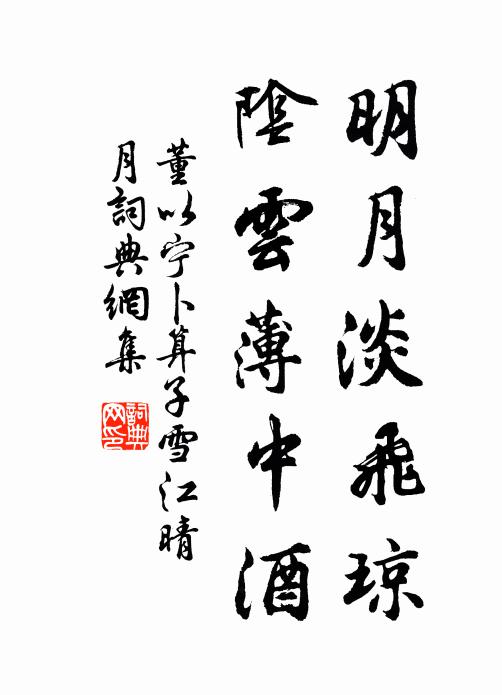 明月淡飛琼
陰雲薄中酒
董以宁卜算子雪江晴
月詞典網集
詞典网印